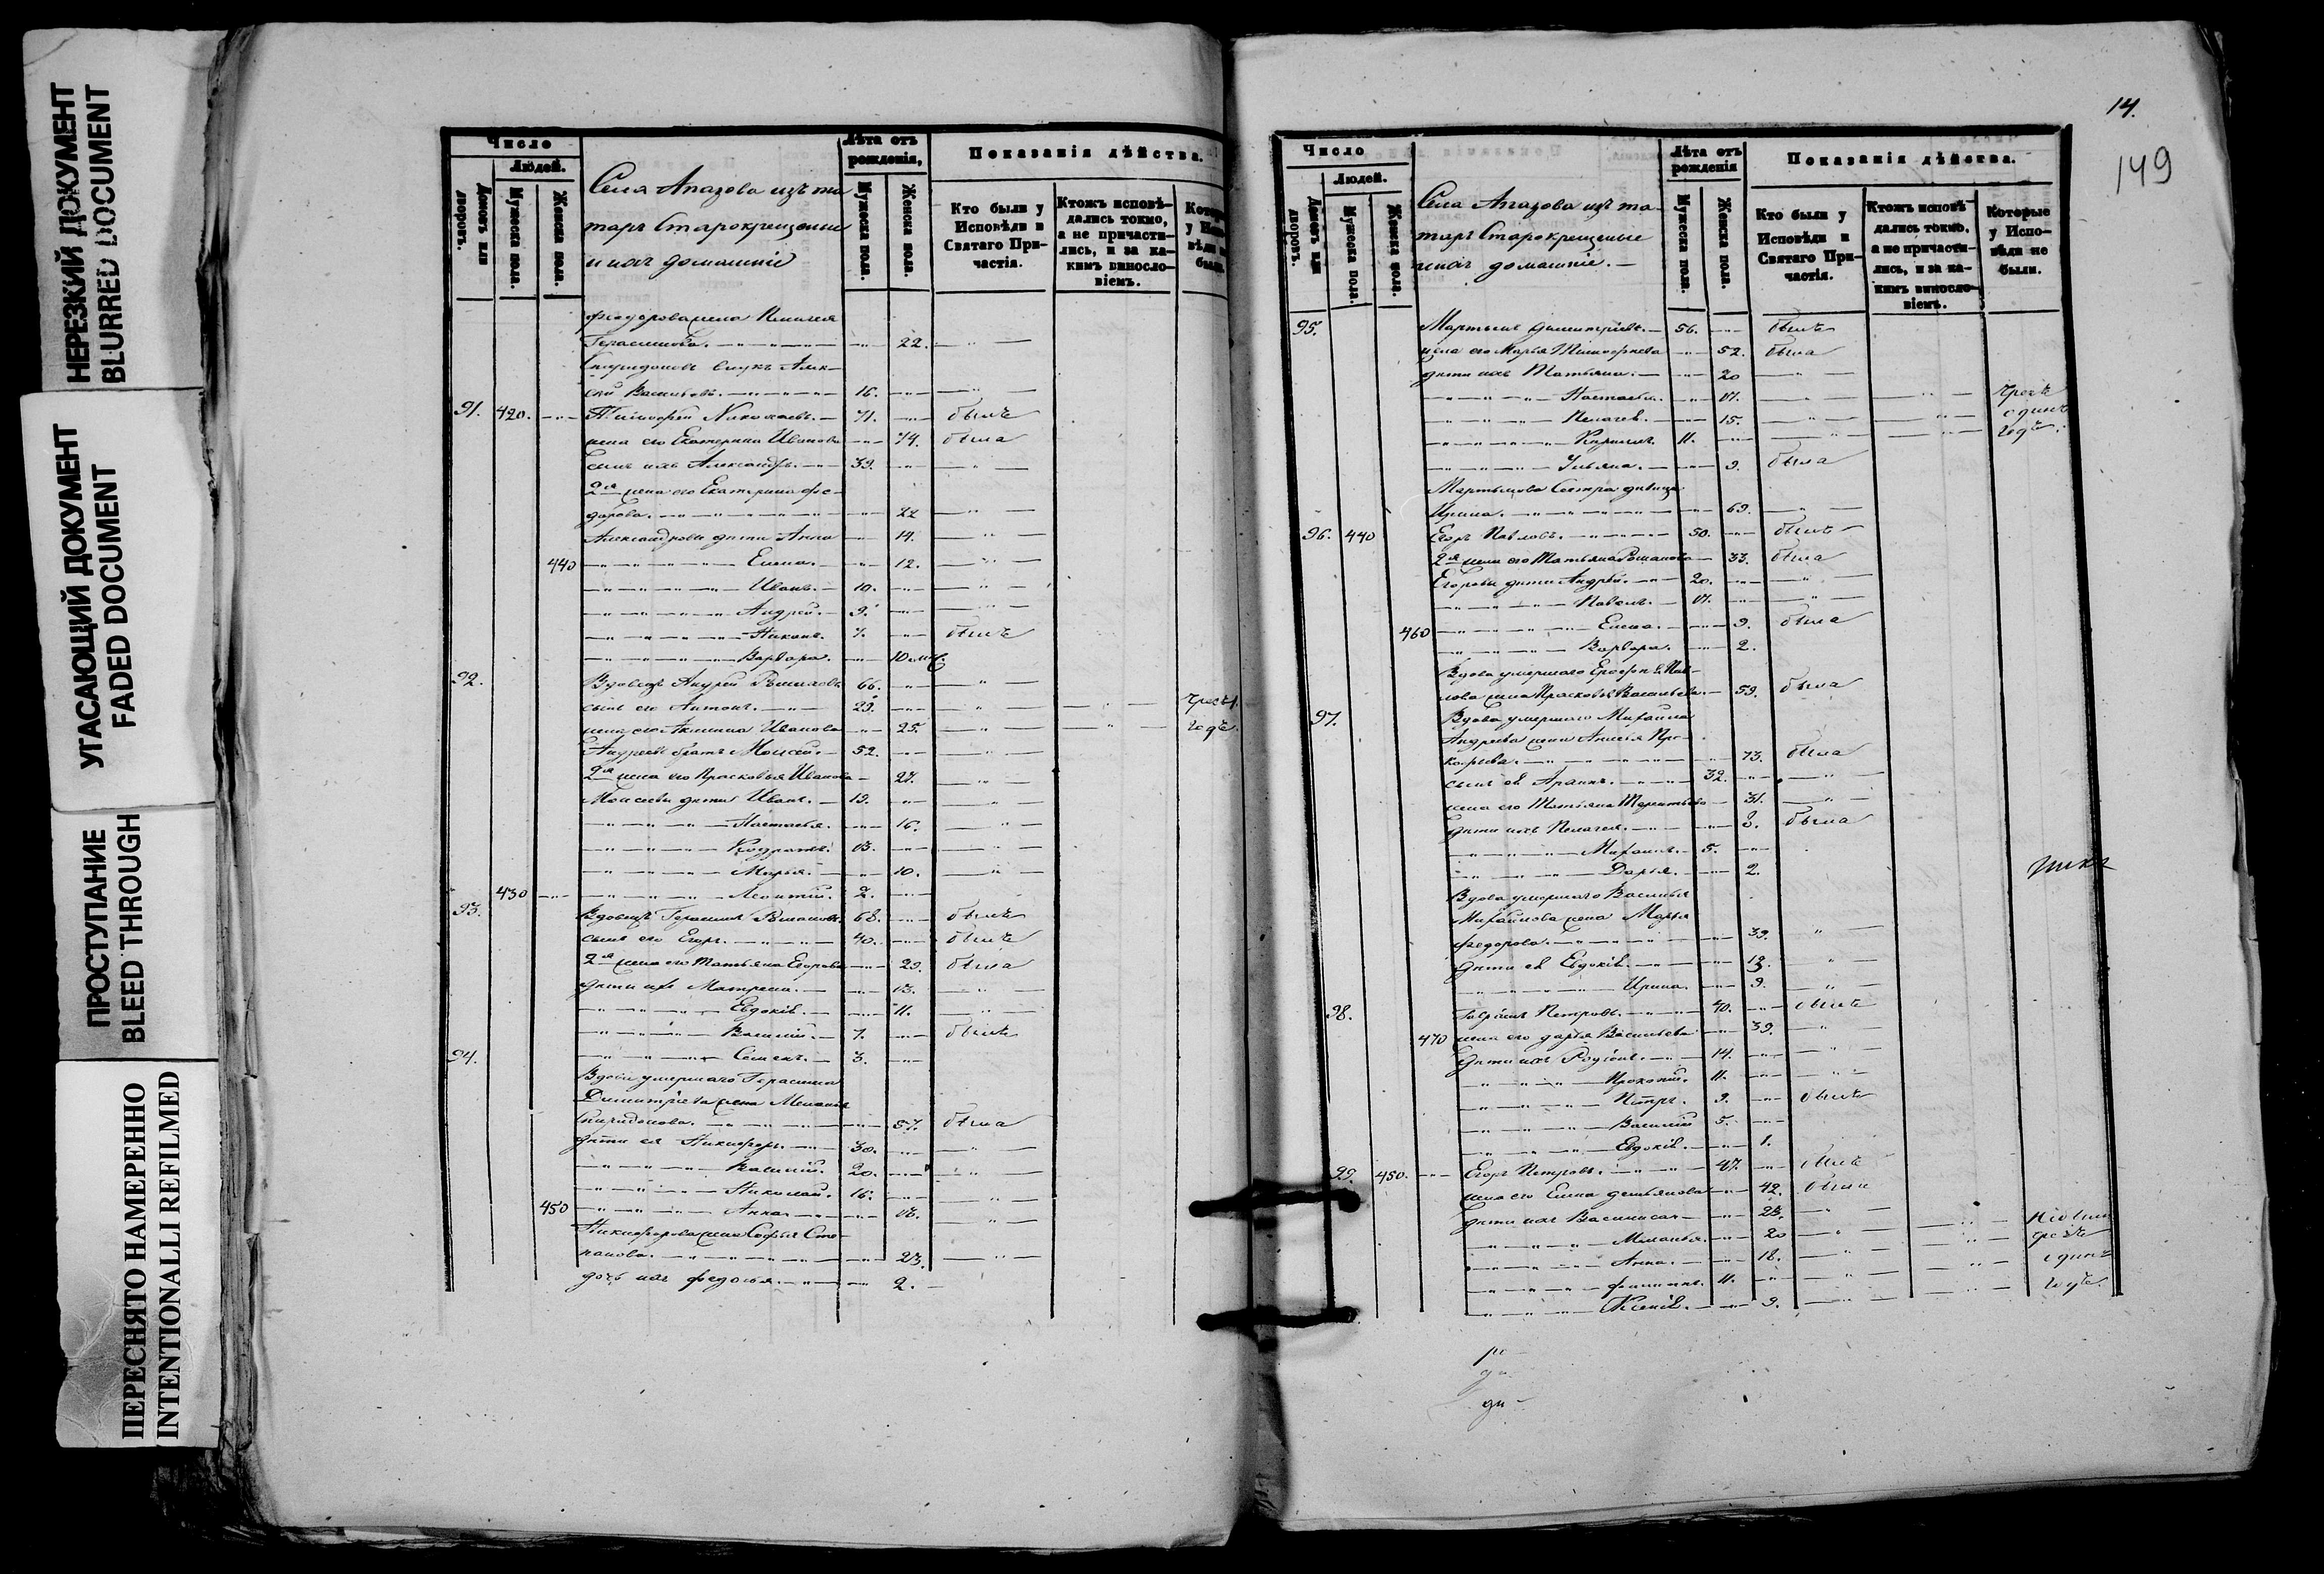 НЕРЕЗКИЙ ДОКУМЕНТ
BLURRED DOCUMENT
УГАСАЮЩИЙ ДОКУМЕНТ
FADED DOCUMENT
ПРОСТУПАНИЕ
BLEED THROUGH
ПЕРЕСНЯТО НАМЕРЕННО
INTENTIONALLI REFILMED
Число
Людей.
Домовъ или дворовъ.
Мужеска пола.
Женска пола.
Села Апазова изъ та
таръ Старокрещеные
и ихъ домашніе
Лѣта отъ рожденія,
Мужеска пола.
Женска пола.
Показанія дѣйства.
Кто были у Исповѣди и Святаго Причастія.
Ктожъ исповѣдались токмо, а не причастились, и за какимъ винословіемъ.
Феодорова жена Пелагея
Герасимова. 22.
Спиридоновъ внукъ Алек-
сѣй Васильевъ. 16.
91. 420. Тимофей Николаевъ. 71. былъ
жена его Екатерина Иванова 74. была
Сынъ ихъ Александръ. 39.
2я жена его Екатерина Фео-
дорова. 22
Александровы дѣти Анна 14.
440 Елена. 12.
Иванъ. 10.
Андрей. 9.
Никонъ. 7. былъ
Варвара. 10 мѣ.
92. Вдовецъ Андрей 66.
сынъ его Антонъ. 29.
жена его Акилина Иванова 25. годъ.
Андреевъ братъ Моисей. 52.
2я жена его Прасковья Иванова 27.
Моисеевы дѣти Иванъ. 19.
Настасья. 16.
Кодратъ. 13.
Марья. 10.
430 Леонтій. 2.
93. Вдовецъ Герасимъ 68. былъ
сынъ его Егоръ. 40. былъ
2я жена его Татьяна Егорова 29. была
дѣти ихъ Матрена. 13.
Евдокія. 11.
Василій. 7. былъ
94. Семенъ. 3.
Вдова умершаго Герасима
Димитріева жена Меланья
Спиридонова. 57. была
дѣти ея Никифоръ. 30.
Василій. 20.
Николай. 16.
450 Анна
Никифорова жена Софья Сте-
панова. 23.
дочь ихъ Федосья. 2.
14.
149
Число
Людей.
Домовъ или дворовъ.
Мужеска пола.
Женска пола.
Села Апазова изъ та-
таръ Старокрещеные
и ихъ домашніе.
Лѣта отъ рожденія
Мужеска пола.
Женска пола.
Показанія дѣйства.
Кто были у Исповѣди и Святаго Причастія.
Ктожъ исповѣдались токмо, а не причастились, и за какимъ винословіемъ.
Которые у Исповѣди не были.
95. Мартынъ Димитріевъ. 56. былъ
жена его Марья Тимофеева 52. была
дѣти ихъ Татьяна. 20
Настасья. 17.
Пелагея. 15. одинъ
Кириллъ. 11. годъ.
Ульяна. 9. была
Мартынова Сестра дѣвица
Ирина. 69.
96. 440 Егоръ Павловъ. 50. былъ
2я жена его Татьяна Романова 33. была
Егоровы дѣти Андрей. 20.
Павелъ. 17.
460 Елена. 9. была
Варвара. 2.
Вдова умершаго Ерофея Пав-
лова жена Прасковья Васильева. 59. была
97. Вдова умершаго Михаила
Андреева жена Анисья Про-
кофьева. 73. была
сынъ ея 32.
жена его Татьяна Терентьева 31.
дѣти ихъ Пелагея. 8. была
Михаилъ. 5.
Дарья. 2.
Вдова умершаго Василья
Михайлова жена Марья
Федорова. 39.
дѣти ея Евдокія. 13.
Ирина. 9.
98. Гаврилъ Петровъ. 40. былъ
470 жена его Дарья Васильева 39.
дѣти ихъ Родіонъ. 14.
Прокопій. 11.
Петръ. 9. былъ
Василій 5.
Евдокія. 1.
99. 450. Егоръ Петровъ. 47. былъ
жена его Елена Демьянова 42. была
дѣти ихъ Василиса 23.
Меланья. 20
Анна. 18. одинъ
Филиппъ. 11. годъ.
Ксенія. 9.